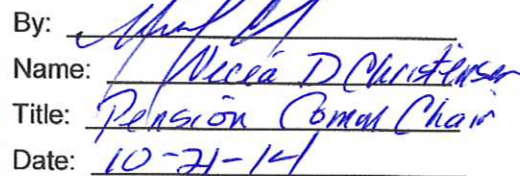 By:
Name: D Christensen
Title: Pension Comm Chair
Date: 10-21-14